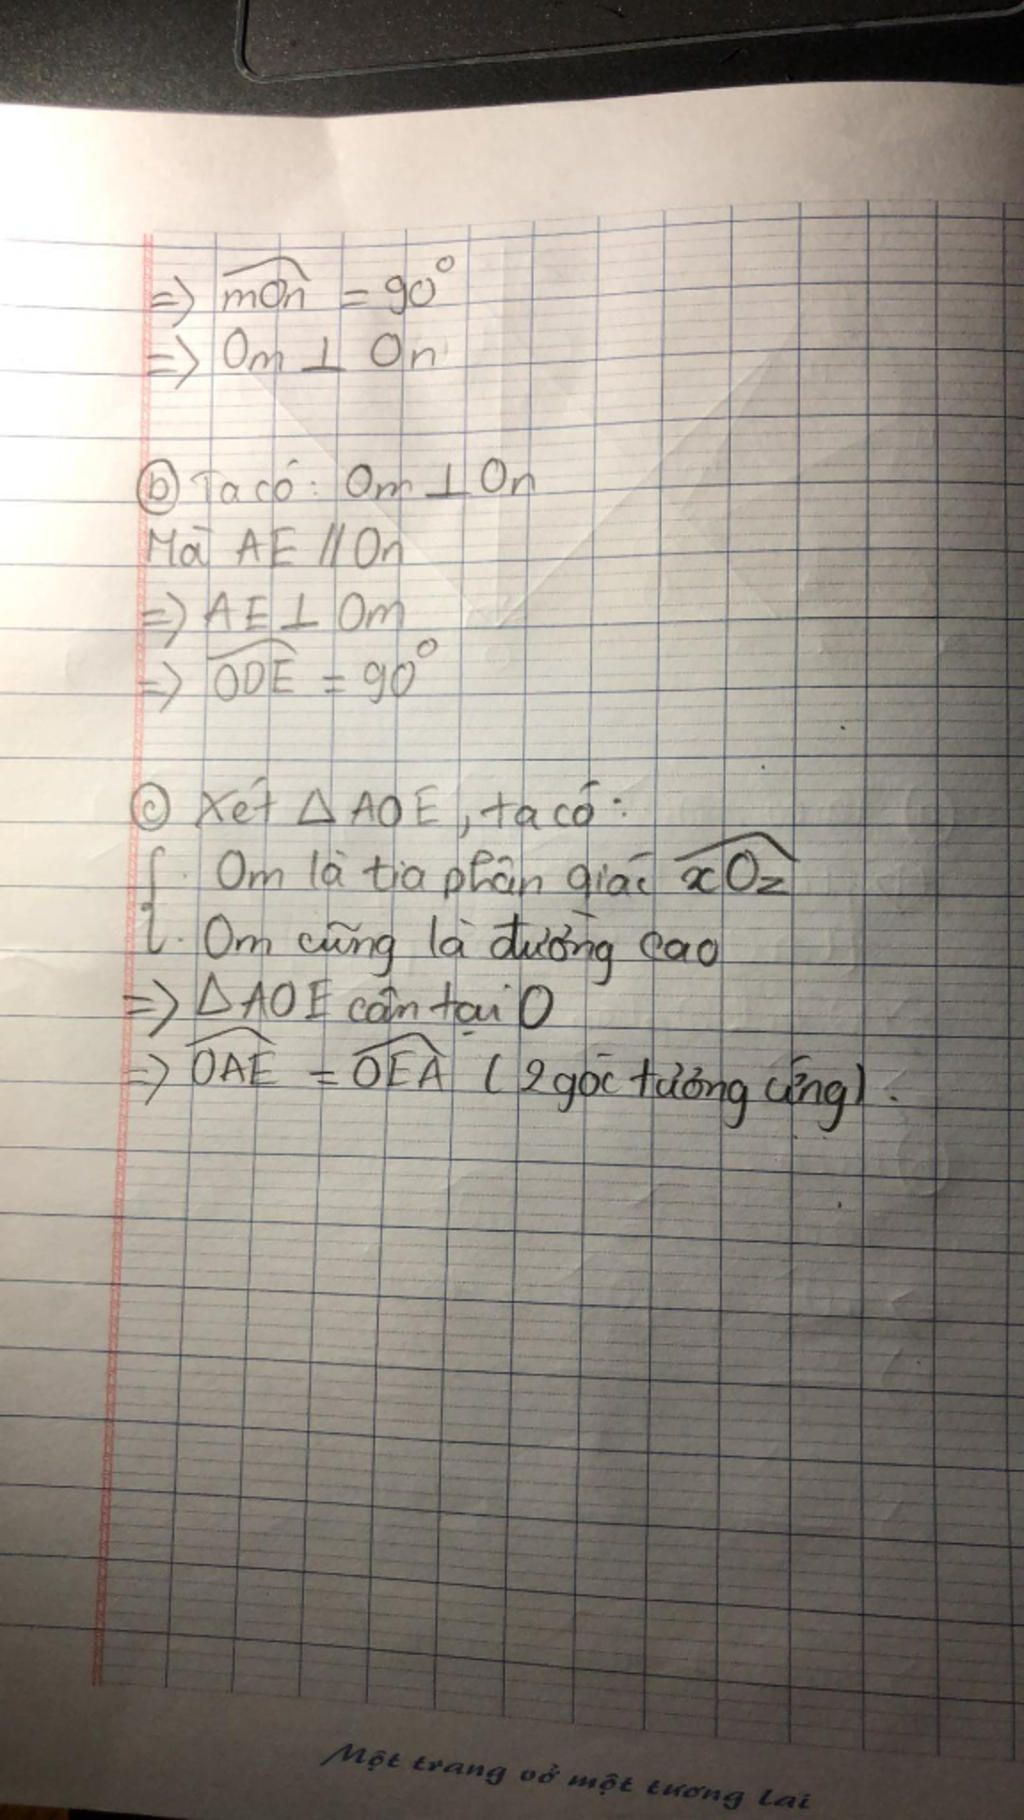 => mOn = 90°
=> Om ⊥ On
ⓑ Ta có: Om ⊥ On
Mà AE // On
=> AE ⊥ Om
=> ODE = 90°
ⓒ Xét △AOE, ta có:
{ . Om là tia phân giác xOz
. Om cũng là đường cao
=> △AOE cân tại O
=> OAE = OEA (2 góc tương ứng).
Một trang vở một tương lai